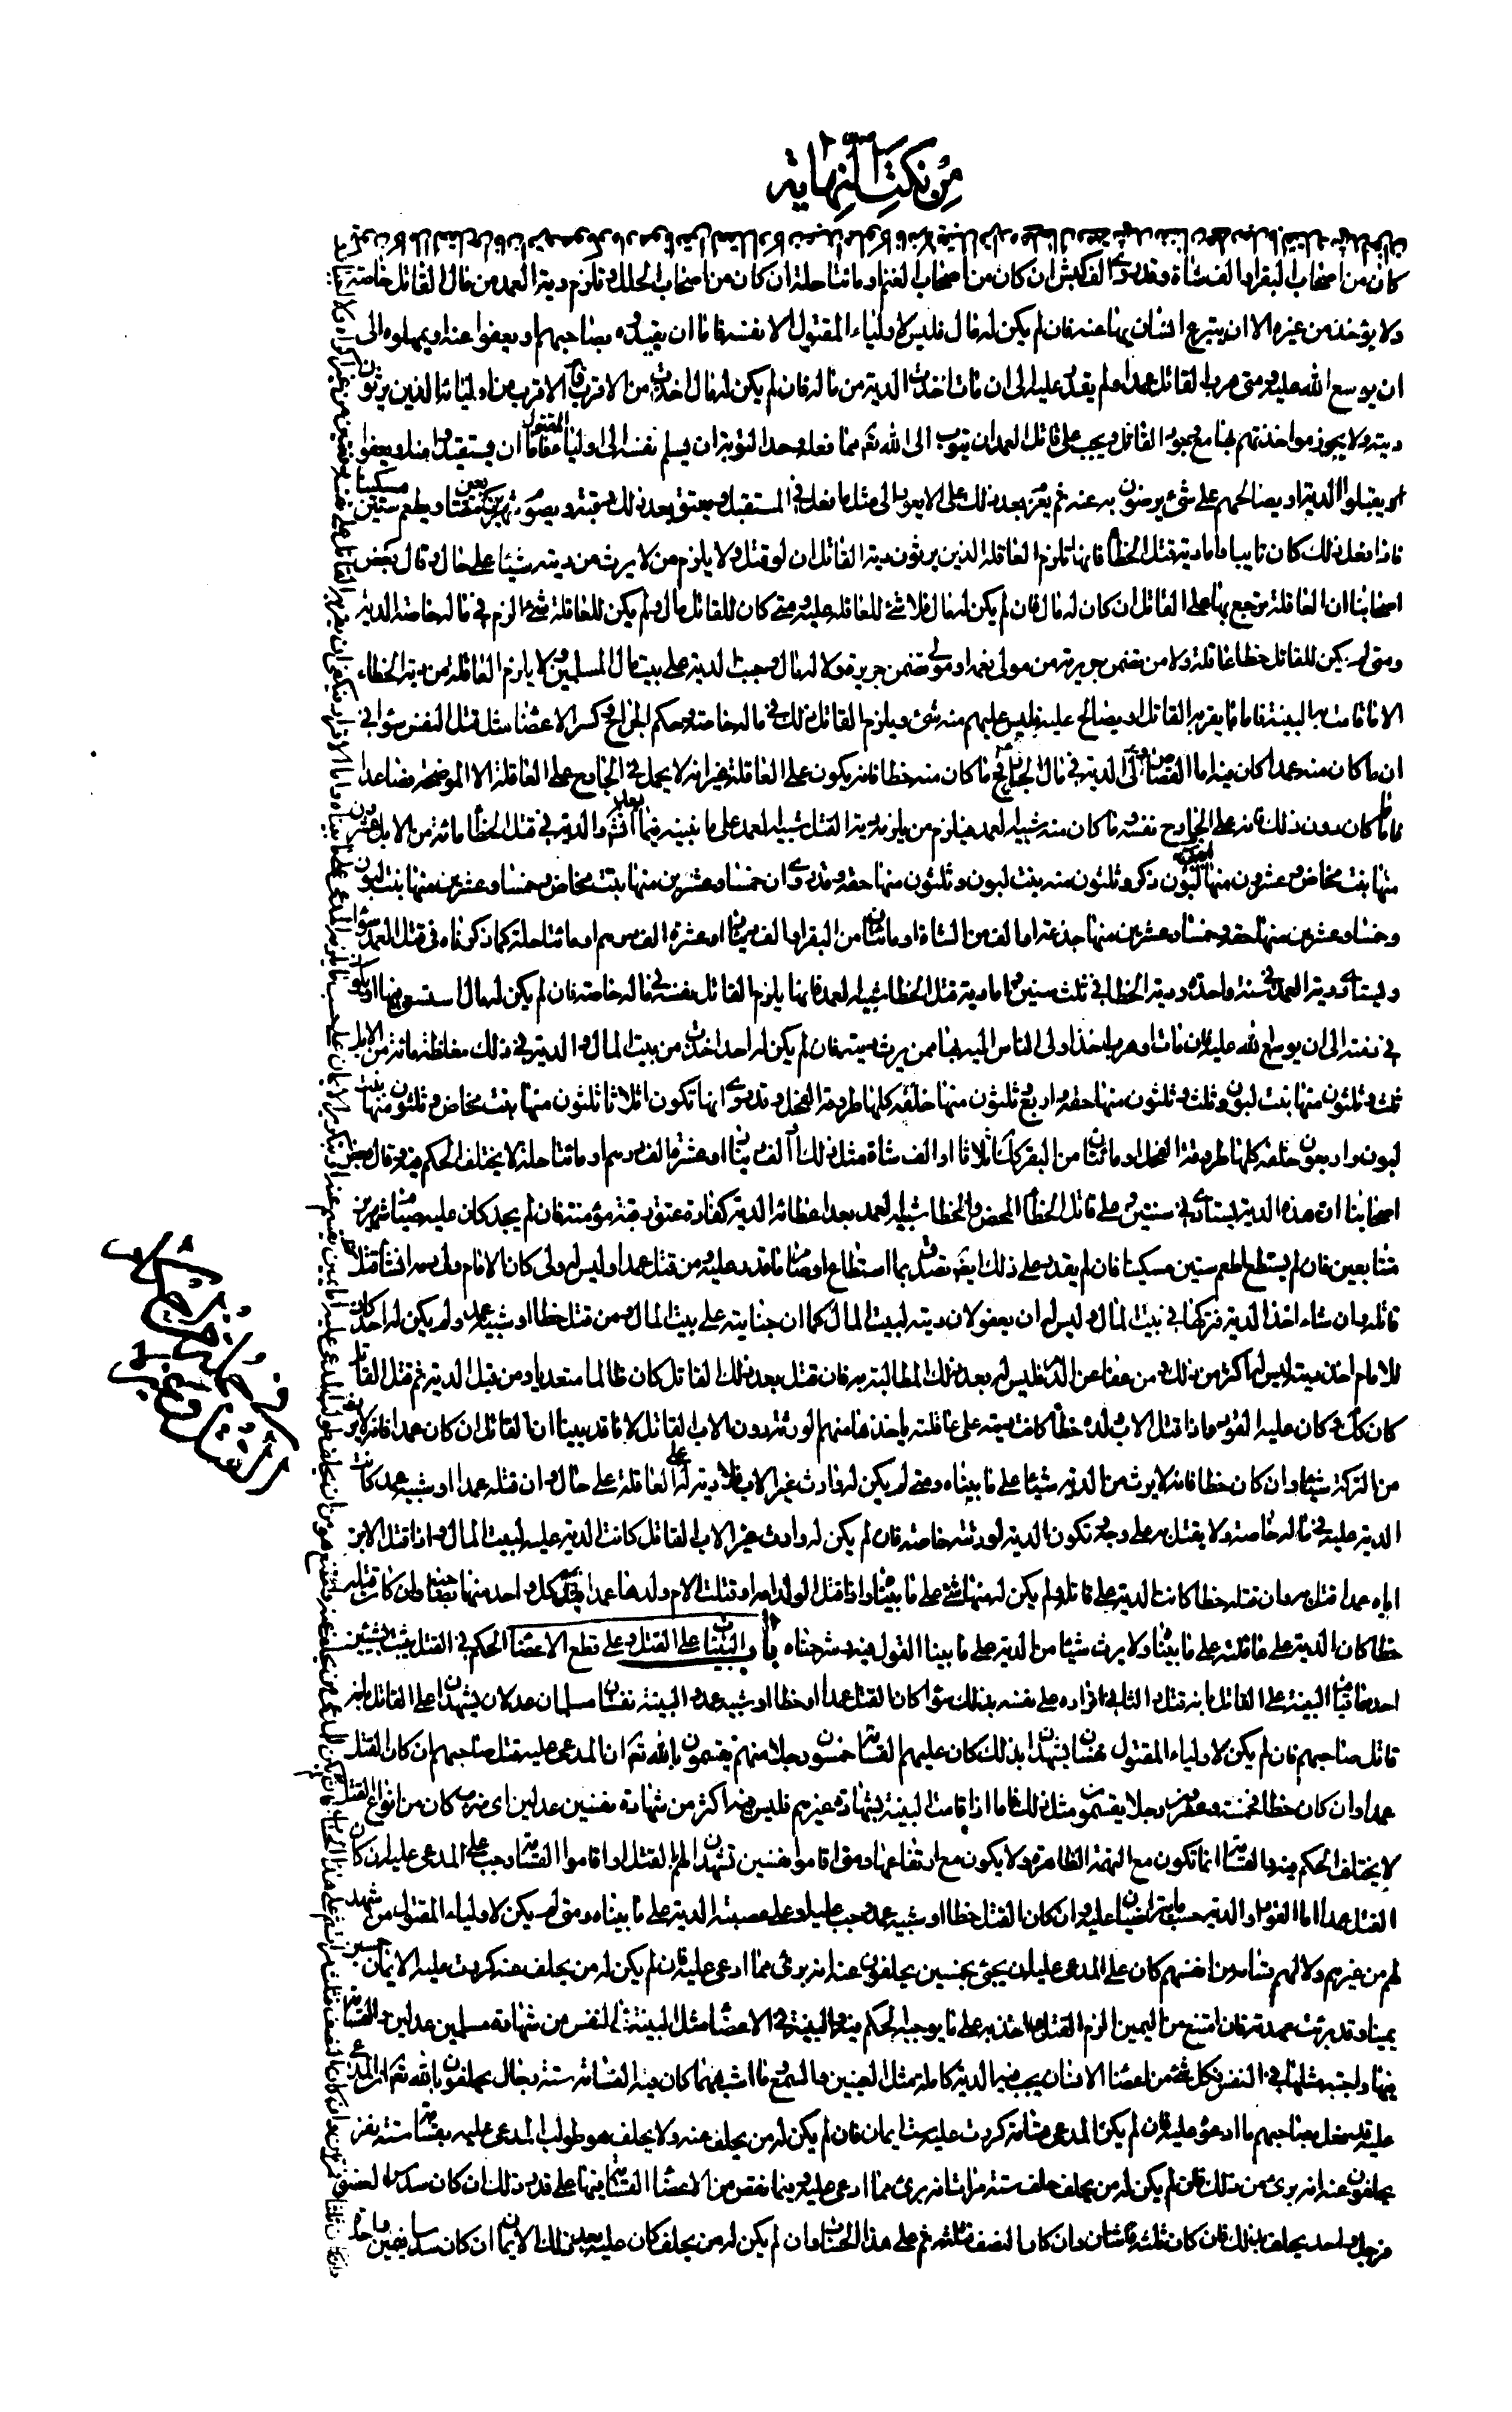 من نكت النهاية
كان من اصحاب البقر او الف شاة وقد روى الف كبش ان كان من اصحاب الغنم او مائتا حلة ان كان من اصحاب الحلل وتلزم دية العمد من مال القاتل خاصة
ولا يؤخذ من غيره الا ان يتبرع انسان بها عنه فان لم يكن له مال فليس لاولياء المقتول الا نفسه فاما ان يقيدوه بصاحبهم او يعفوا عنه او يمهلوه الى
ان يوسع الله عليه ومتى هرب القاتل عمدا ولم يقدر عليه الى ان مات اخذت الدية من ماله فان لم يكن له مال اخذت من الاقرب فالاقرب من اوليائه الذين يرثون
ديته ولا يجوز مؤاخذتهم بها مع وجود القاتل ويجب على قاتل العمد ان يتوب الى الله تعالى مما فعله وحد التوبة ان يسلم نفسه الى اولياء المقتول فاما ان يستقيدوا منه او يعفوا
او يقبلوا الدية او يصالحهم على شئ يرضون به عنه ثم يعزم بعد ذلك على الا يعود الى مثل ما فعل في المستقبل ويعتق بعد ذلك رقبة ويصوم شهرين متتابعين ويطعم ستين مسكينا
فاذا فعل ذلك كان تايبا واما دية قتل الخطأ فانها تلزم العاقلة الذين يرثون دية القاتل ان لو قتل ولا يلزم من لا يرث من ديته شيئا على حال وقال بعض
اصحابنا ان العاقلة ترجع بها على القاتل ان كان له مال فان لم يكن له مال فلا شئ للعاقلة عليه ومتى كان للقاتل مال ولم يكن للعاقلة شئ الزم في ماله خاصة الدية
ومتى لم يكن للقاتل خطا عاقلة ولا من يضمن جريرته من مولى نعمة او مولى تضمن جريرة ولا له مال وجبت الدية على بيت مال المسلمين ولا يلزم العاقلة من دية الخطاء
الا ما قامت به البينة فاما ما يقر به القاتل او يصالح عليه فليس عليهم منه شئ ويلزم القاتل ذلك في ماله خاصة وحكم الجراح وكسر الاعضا مثل قتل النفس سوا في
ان ما كان منه عمدا كان فيه اما القصاص او الدية في مال الجانى وما كان منه خطا فانه يكون على العاقلة غير انه لا يحمل في الجارح على العاقلة الا الموضحة فصاعدا
فاما ما كان دون ذلك فانه على الجارح نفسه وما كان منه شبيه العمد فيلزم من يلزمه دية القتل شبيه العمد على ما نبينه فيما بعد انشاء الله والدية في قتل الخطأ مائة من الابل عشرون
منها بنت مخاض وعشرون منها ابن لبون ذكر وثلثون منه بنت لبون وثلثون منها حقة وقد روى ان خمسا وعشرين منها بنت مخاض وخمسا وعشرين منها بنت لبون
وخمسا وعشرين منها حقة وخمسا وعشرين منها جذعة او الف من الشاة او مائتان من البقر او الف دينار او عشرة الف درهم او مائتا حلة كما ذكرناه في قتل العمد سوا
وتستادى دية العمد في سنة واحدة ودية الخطا في ثلث سنين واما دية قتل الخطا شبيه العمد فانها يلزم القاتل بنفسه في ماله خاصة فان لم يكن له مال استسعى بها او يكون
في ذمته الى ان يوسع الله عليه فان مات او هرب اخذ اولى الناس اليه بها ممن يرث ديته فان لم يكن له احد اخذت من بيت المال والدية في ذلك مغلظة مائة من الابل
ثلث وثلثون منها بنت لبون وثلث وثلثون منها حقة واربع وثلثون منها خلفة كلها طروقة الفحل وقد روى انها تكون اثلاثا ثلثون منها بنت مخاض وثلثون منها بنت
لبون واربعون خلفة كلها طروقة الفحل او مائتان من البقر كذلك اثلاثا او الف شاة مثل ذلك او الف دينار او عشرة الف درهم او مائتا حلة لا يختلف الحكم فيه وقال بعض
اصحابنا ان هذه الدية تستادى في سنتين وعلى قاتل الخطأ المحض والخطا شبيه العمد بعد اعطائه الدية كفارة عتق رقبة مؤمنة فان لم يجد كان عليه صيام شهرين
متتابعين فان لم يستطع اطعم ستين مسكينا فان لم يقدر على ذلك ايضا تصدق بما استطاع او صام ما قدر عليه ومن قتل عمدا وليس له ولى كان الامام ولى دمه ان شاء قتل
قاتله وان شاء اخذ الدية فتركها في بيت المال وليس له ان يعفو لان ديته لبيت المال كما ان جنايته على بيت المال ومن قتل خطا او شبيه عمد ولم يكن له احد كان
للامام اخذ ديته ليس له اكثر من ذلك ومن عفا عن الدم فليس له بعد ذلك المطالبة به فان قتل بعد ذلك القاتل كان ظالما متعديا ومن قبل الدية ثم قتل القاتل
كان كذلك وكان عليه القود واذا قتل الاب ولده خطأ كانت ديته على عاقلته ياخذها منهم الورثة دون الاب القاتل لانا قد بينا ان القاتل ان كان عمدا فانه لا يرث
من التركة شيئا وان كان خطا فانه لا يرث من الدية شيئا على ما بيناه ومتى لم يكن له وارث غير الاب فلا دية له على العاقلة على حال وان قتله عمدا او شبيه عمد كانت
الدية عليه في ماله خاصة ولا يقتل به على وجه وتكون الدية لورثته خاصة فان لم يكن له وارث غير الاب القاتل كانت الدية عليه لبيت المال واذا قتل الابن
اباه عمدا قتل به وان قتله خطا كانت الدية على عاقلته ولم يكن له منها شئ على ما بيناه واذا قتل الولد امه او قتلت الام ولدها عمدا قتل كل واحد منهما بصاحبه وان كان قتله
خطا كان الدية على عاقلته على ما بيناه ولا يرث شيئا من الدية على ما بينا القول فيه وشرحناه باب البينات على القتل وعلى قطع الاعضا الحكم في القتل يثبت بشيئين
احدهما قيام البينة على القاتل بانه قتل والثاني اقراره على نفسه بذلك سوا كان القتل عمدا او خطا او شبيه عمد والبينة نفسان مسلمان عدلان يشهدان على القاتل بانه
قاتل صاحبهم فان لم يكن لاولياء المقتول نفسان يشهدان بذلك كان عليهم القسامة خمسون رجلا منهم يقسمون بالله تعالى ان المدعى عليه قتل صاحبهم ان كان القتل
عمدا وان كان خطا فخمسة وعشرون رجلا يقسمون مثل ذلك فاما اذا قامت البينة بشهادة غيرهم فليس فيه اكثر من شهادة نفسين عدلين اى ضرب كان من انواع القتل
لا يختلف الحكم فيه والقسامة انما تكون مع التهمة الظاهرة ولا يكون مع ارتفاعها ومتى اقاموا نفسين تشهدان لهم بالقتل او اقاموا القسامة وجب على المدعى عليه ان كان
القتل عمدا اما القود او الدية حسب ما يتراضيان عليه وان كان القتل خطا او شبيه عمد وجب عليه او على عصبته الدية على ما بيناه ومتى لم يكن لاولياء المقتول من يشهد
لهم من غيرهم ولا لهم قسامة من انفسهم كان على المدعى عليه ان يجئ بخمسين يحلفون عنه انه برئ مما ادعى عليه فان لم يكن له من يحلف عنه كررت عليه الايمان خمسين
يمينا وقد برئت عهدته فان امتنع من اليمين الزم القتل واخذ به على ما يوجبه الحكم فيه والبينة في الاعضا مثل البينة في النفس من شهادة مسلمين عدلين والقسامة
فيها واجبة مثلها في النفس وكل شئ من اعضا الانسان يجب فيه الدية كاملة مثل العينين والسمع وما اشبههما كان فيه القسامة ستة رجال يحلفون بالله تعالى ان المدعى
عليه قد فعل بصاحبهم ما ادعوه عليه فان لم يكن للمدعى قسامة كررت عليه ست ايمان فان لم يكن له من يحلف عنه ولا يحلف هو طولب المدعى عليه بقسامة ستة نفر
يحلفون عنه انه برئ من ذلك فان لم يكن له من يحلف حلف ستة مرات انه برئ مما ادعى عليه وفيما نقص من الاعضا القسامة فيها على قدر ذلك ان كان سدس العضو
فرجل واحد يحلف بذلك وان كان ثلثه فاثنان وان كان النصف فثلثه ثم على هذا الحساب وان لم يكن له من يحلف كان عليه بعدد ذلك الايمان ان كان سدسا فيمين واحدة